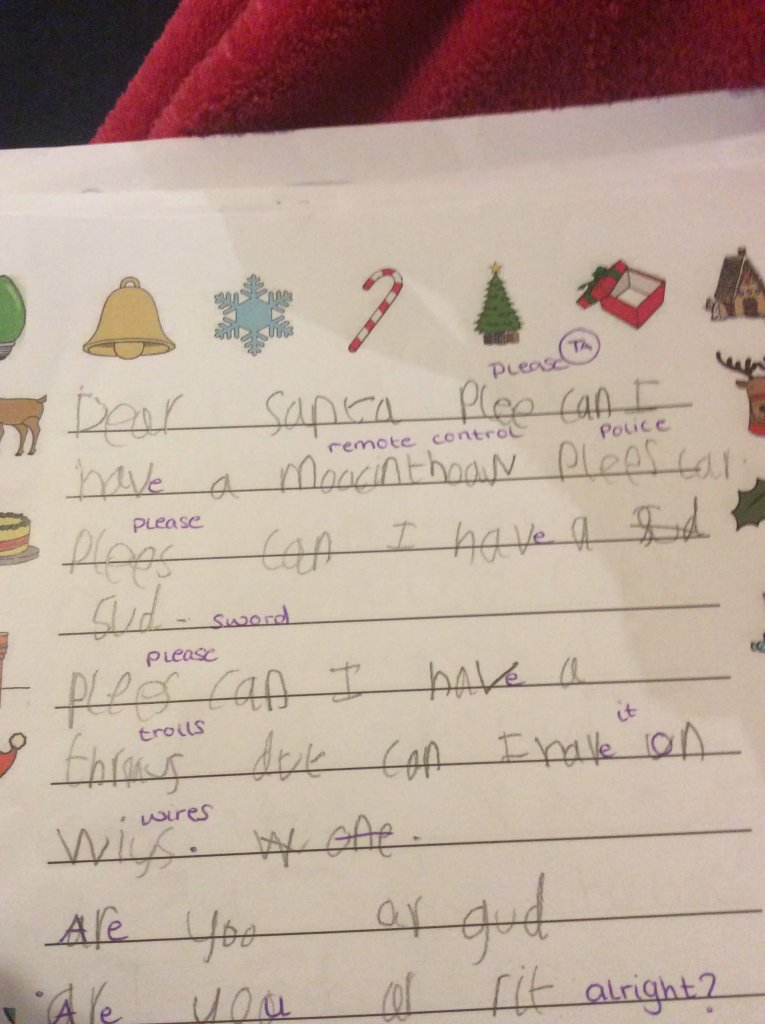 please TA
Dear Santa Plee can I
remote control Police
have a moacinthoaN Plees car.
please
Plees can I have a Sud
sud - sword
please
plees can I have a
trolls it
but can I have on
wires
wiys. one.
Are yoo ar gud
Are you al rit alright?